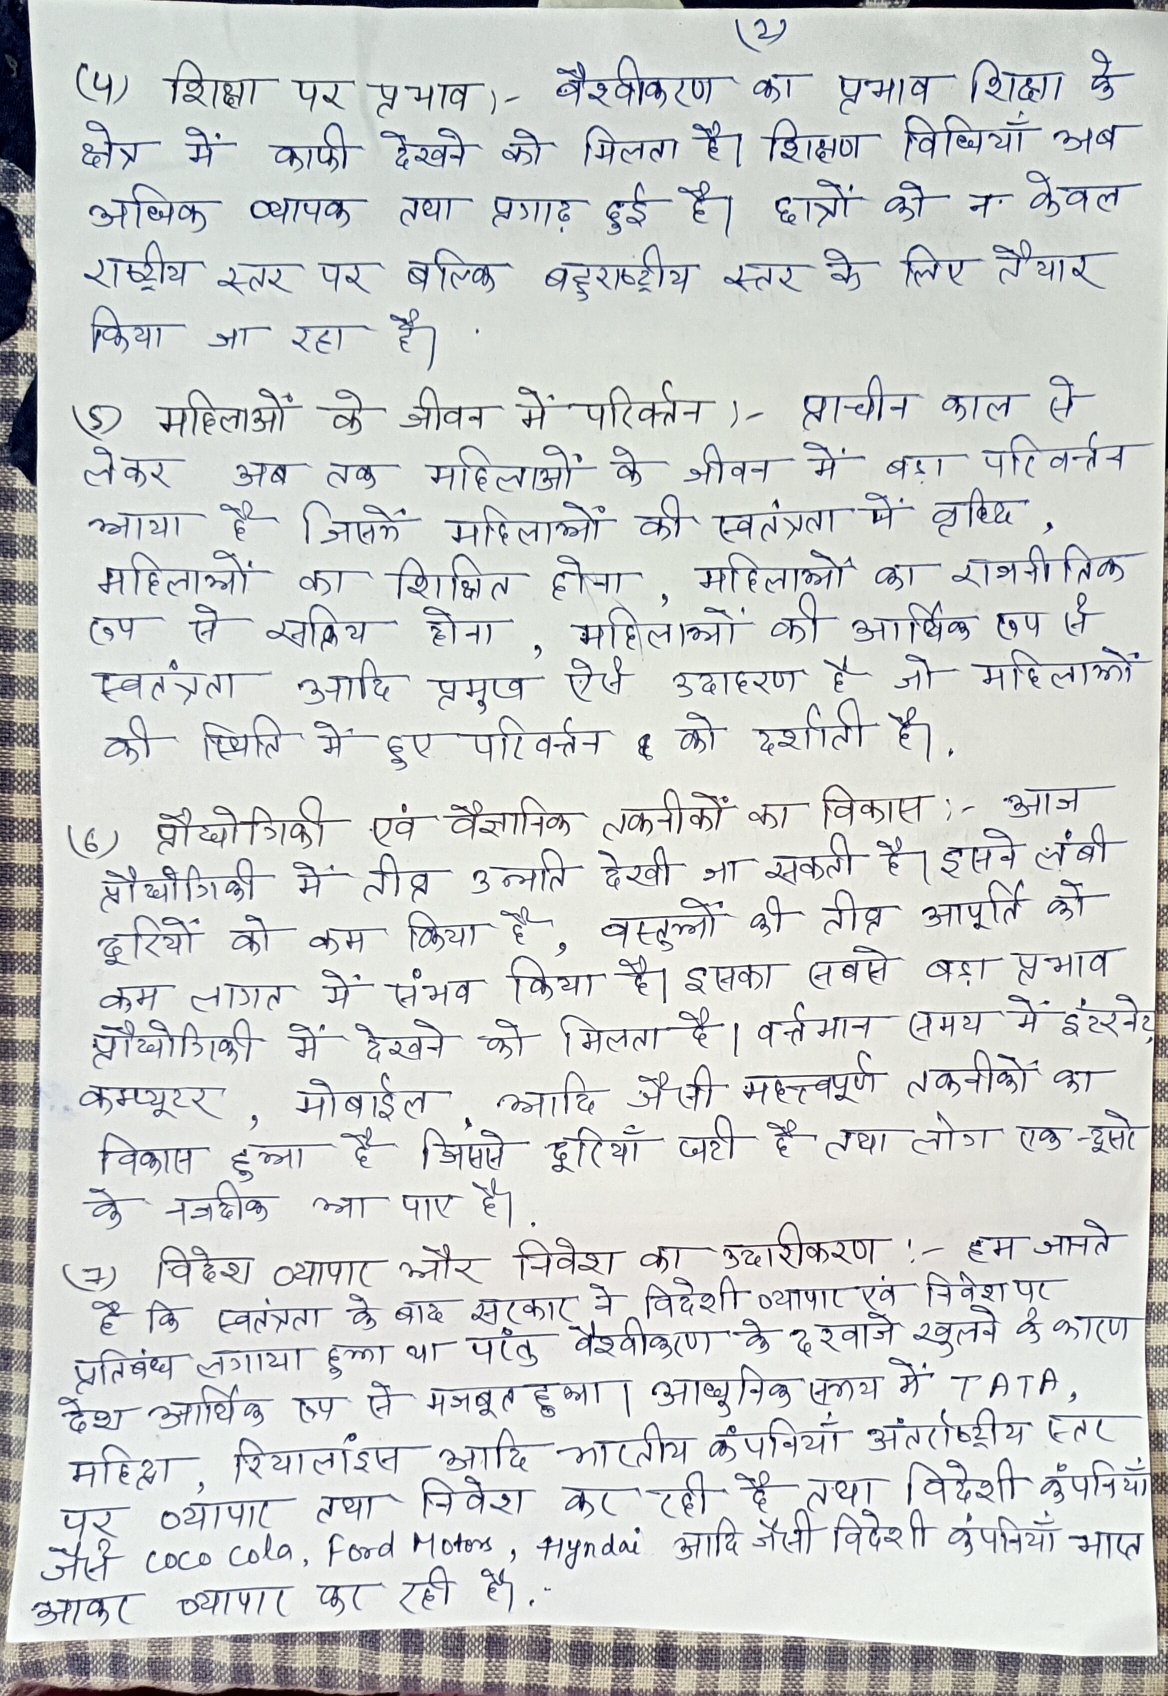 (2)
(4) शिक्षा पर प्रभाव :- वैश्वीकरण का प्रभाव शिक्षा के
क्षेत्र में काफी देखने को मिलता है। शिक्षण विधियाँ अब
अधिक व्यापक तथा प्रगाढ़ हुई है। छात्रों को न केवल
राष्ट्रीय स्तर पर बल्कि बहुराष्ट्रीय स्तर के लिए तैयार
किया जा रहा है।
(5) महिलाओं के जीवन में परिवर्तन :- प्राचीन काल से
लेकर अब तक महिलाओं के जीवन में बड़ा परिवर्तन
आया है जिसमें महिलाओं की स्वतंत्रता में वृध्दि ,
महिलाओं का शिक्षित होना , महिलाओं का राजनीतिक
रूप से सक्रिय होना , महिलाओं की आर्थिक रूप से
स्वतंत्रता आदि प्रमुख ऐसे उदाहरण है जो महिलाओं
की स्थिति में हुए परिवर्तन को दर्शाती है।
(6) प्रौद्योगिकी एवं वैज्ञानिक तकनीकों का विकास :- आज
प्रौद्योगिकी में तीव्र उन्नति देखी जा सकती है। इसने लंबी
दूरियों को कम किया है , वस्तुओं की तीव्र आपूर्ति को
कम लागत में संभव किया है। इसका सबसे बड़ा प्रभाव
प्रौद्योगिकी में देखने को मिलता है। वर्त्तमान समय में इंटरनेट,
कम्प्यूटर , मोबाईल , आदि जैसी महत्त्वपूर्ण तकनीकों का
विकास हुआ है जिससे दूरियाँ घटी है तथा लोग एक-दूसरे
के नजदीक आ पाए है।
(7) विदेश व्यापार और निवेश का उदारीकरण :- हम जानते
है कि स्वतंत्रता के बाद सरकार ने विदेशी व्यापार एवं निवेश पर
प्रतिबंध लगाया हुआ था परंतु वैश्वीकरण के दरवाजे खुलने के कारण
देश आर्थिक रूप से मजबूत हुआ। आधुनिक समय में TATA,
महिंद्रा , रियालांइस आदि भारतीय कंपनियाँ अंतर्राष्ट्रीय स्तर
पर व्यापार तथा निवेश कर रही है तथा विदेशी कंपनियाँ
जैसे coco cola, Ford Motors, Hyndai आदि जैसी विदेशी कंपनियाँ भारत
आकर व्यापार कर रही है।